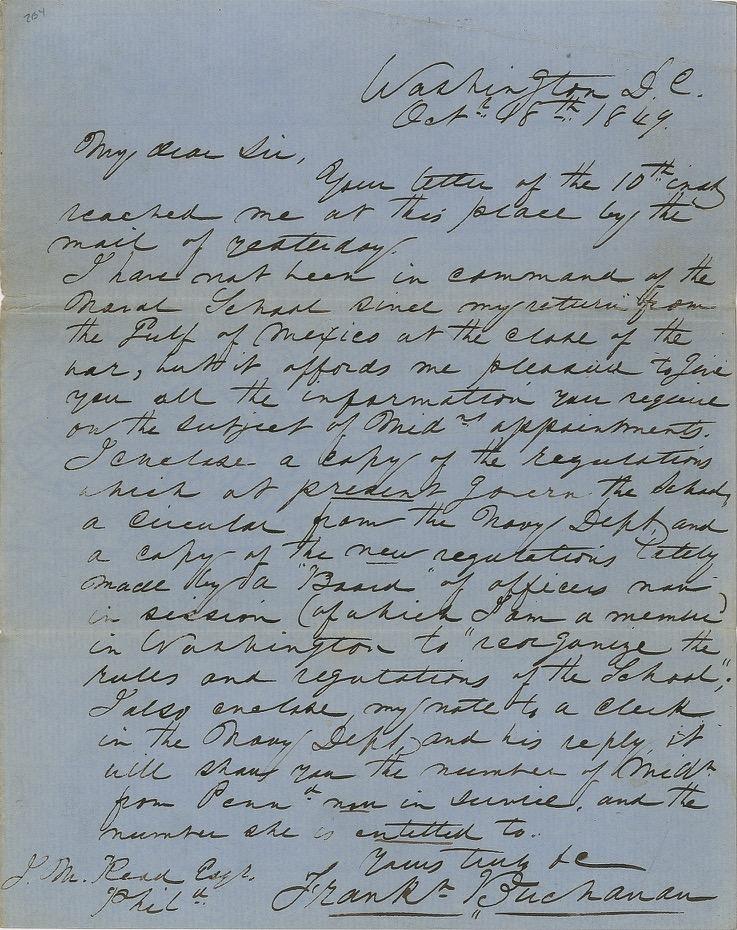 284
Washington D.C.
Octr. 18th. 1849.
My dear Sir,
Your letter of the 10th inst
reached me at this place by the
mail of yesterday.
I have not been in command of the
Naval School since my return from
the Gulf of Mexico at the close of the
war, but it affords me pleasure to give
you all the information you require
on the subject of Midns appointments.
I enclose a copy of the regulations
which at present govern the School,
a circular from the Navy Dept, and
a copy of the new regulations lately
made by a "Board" of officers now
in session (of which I am a member)
in Washington to "reorganize the
rules and regulations of the School";
I also enclose my note to a clerk
in the Navy Dept, and his reply, it
will show you the number of Midn
from Penna now in service, and the
number she is entitled to.
Yours truly &c
J. M. Read Esqr.
Frankn Buchanan
Phila